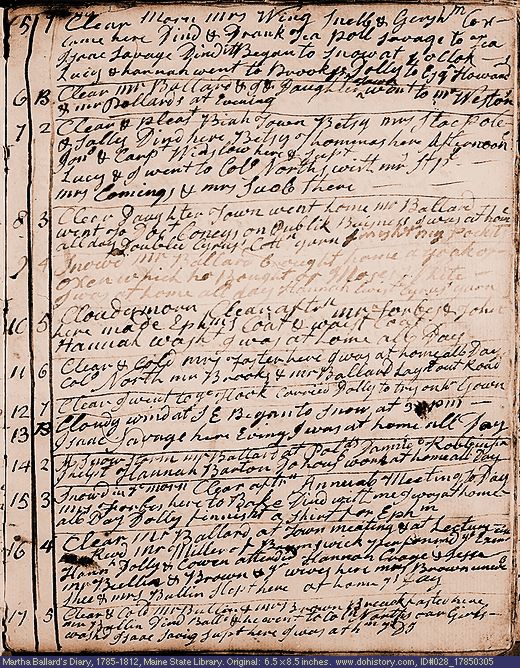 5 7 Clear Morn Mrs Wing Snell & Gershm Cox
came here Dind & Drank Tea Poll Savage to tea
Isaac Savage Dind it Began to Snow at 8 oClok
Lucy & hannah went to Brooks Dolly to Esq Howard
6 B Clear Mr Ballard & I & Daughter went to Mr Weston
& mr Pollards at Evening
7 2 Clear & pleast Biah Town Betsy mrs Stackpole
& Sally Dind here Betsy Thommas here afternoon
Jons & Capn Winslow here & Supt
Lucy & I went to Colo Norths with mrs Stp
mrs Comings & mrs Jacob there
8 3 Clear Daughter Town went home mr Ballard
went to Doct Coneys on Publik Buisness I was at home
all day Doubled Cyrus Cottn yarn
9 4 Snowd mr Ballard Brought home a yoak of
oxen which he Bought of Moses White
I was at home all day Hannah Cyrus yarn
10 5 Cloudy morn Clear aftn mrs forbes & John
here made Ephms Coat & waist Coat
Hannah washt I was at home all Day
11 6 Clear & Cold mrs foster here I was at home all Day
Colo North mr Brooks & mr Ballard Lay out Road
12 7 Clear I went to ye Hook Carried Dolly to try on hr Gown
13 B Cloudy wind at S E Began to Snow at 3 pm
Isaac Savage here Evinng I was at home all Day
14 2 A Snow Storm mr Ballard at Polds
Hannah Barton to house work at home all Day
15 3 Snowd in ye morn Clear aftn Annual Meeting to Day
mrs forbes here to Bake Dind with me I was at home
all Day Dolly finnisht a Shirt for Ephm
16 4 Clear mr Ballard at Town meeting & at Lecture
Revd Mr Miller of Brunswick performd ye Exers
Hannh Dolly & Cowen attended Hannah Coage & Jesse
mr Bullin & Brown & yr wives here mrs Brown unwell
Shee & mrs Bullin Slept here at home ys Day
17 5 Clear & Cold mr Bullin & mr Brown Breakfasted here
mr Bullin Dind Ballard & he went to Colo Girls
washt Isaac Savag Supt here I was at hm ys D
Martha Ballard's Diary, 1785-1812, Maine State Library. Original: 6.5 x 8.5 inches. www.dohistory.org, ID#028_17850305